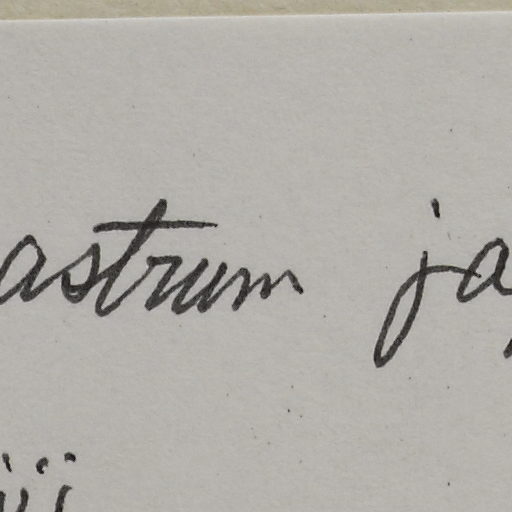 astrum ja